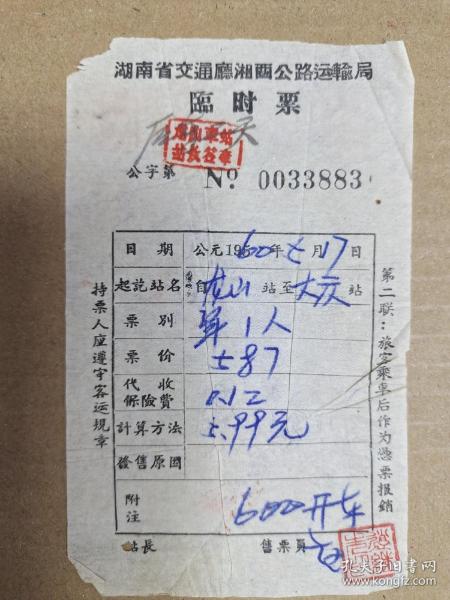 湖南省交通廳湘西公路运輸局
臨时票
龙山車站
公字第 Nº 0033883
日期 公元1960年七月17日
起訖站名 自龙山站至大庸站
票別 單1人
票价 5.87
代收保險費 0.12
計算方法 5.99元
發售原因
附注 600开车
站長 售票員
持票人应遵守客运規章
第二联：旅客乘車后作为憑票报銷
孔夫子旧书网